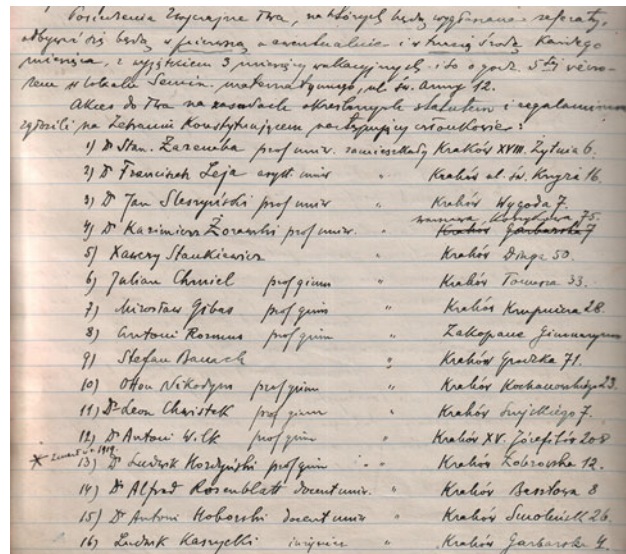 Posiedzenia zwyczajne Twa, na których będą wygłaszane referaty,
odbywać się będą w pierwszą a ewentualnie i w trzecią środę każdego
miesiąca, z wyjątkiem 3 miesięcy wakacyjnych i to o godz. 5tej wieczo-
rem w lokalu Semin. matematycznego, ul. św. Anny 12.
Akces do Twa na zasadach określonych statutem i regulaminem
zgłosili na Zebraniu Konstytuującem następujący członkowie:
1) Dr Stan. Zaremba prof. uniw. zamieszkały Kraków XVIII. Żytnia 6.
2) Dr Franciszek Leja asyst. uniw " Kraków ul. św. 16.
3) Dr Jan Sleszyński prof uniw " Kraków Wygoda 7.
Warszawa, Koszykowa 75.
4) Dr Kazimierz Żorawski prof uniw. " Kraków Garbarska 7
5) Ksawery Stankiewicz Kraków Długa 50.
6) Julian Chmiel prof gimn " Kraków Tomasza 33.
7) Mirosław Gibas prof gimn " Kraków Krupnicza 28.
8) Antoni prof gimn " Zakopane Gimnazyum
9) Stefan Banach " Kraków Grodzka 71.
10) Otton Nikodym prof gimn " Kraków Kochanowskiego 23.
11) Dr Leon Chwistek prof gimn " Kraków 7.
12) Dr Antoni Wilk prof gimn " Kraków XV. Józefitów 208
* Zmarł 1919.
13) Dr Ludwik Hordyński prof gimn " " Kraków Zobrowska 12.
14) Dr Alfred Rosenblatt docent uniw. " Kraków Basztowa 8
15) Dr Antoni Hoborski docent uniw " Kraków Smoleńsk 26.
16) Ludwik Kasnycki inżynier " Kraków Garbarska 4.